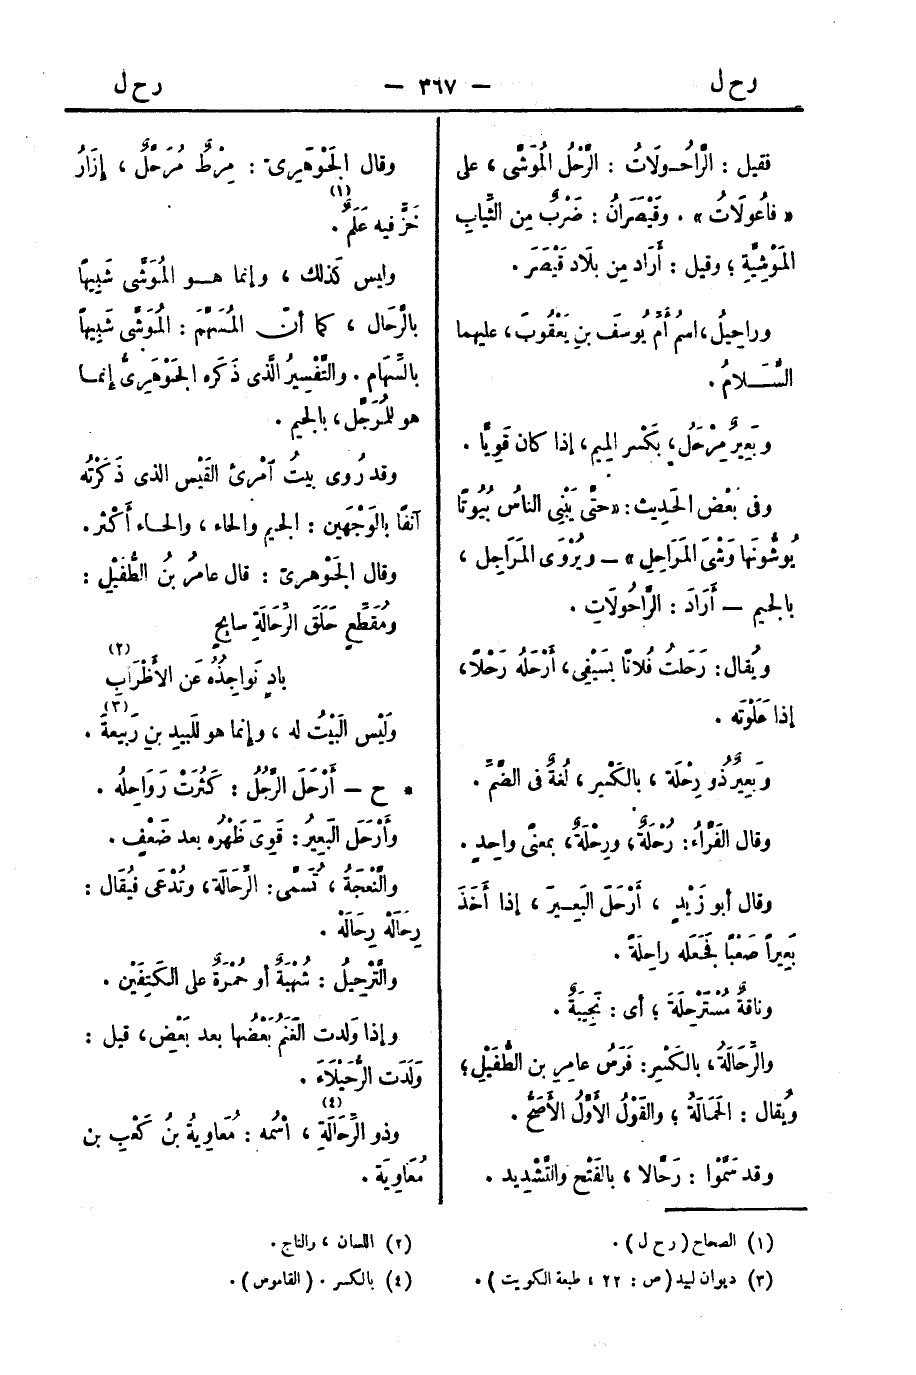 رح ل
— ٣٦٧ —
رح ل
فقيل : الرَّاحُـولَاتُ : الرَّحْلُ المُوَشَّى ، على
« فاعُولَات » . وقَيْصَرَانُ : ضَرْبٌ مِن الثِّيابِ
المَوْشِيَّةِ ؛ وقيل : أَرَاد مِن بِلَاد قَيْصَرَ .
وراحِيلُ ، اسمُ أُمِّ يُوسفَ بنِ يَعْقُوبَ ، عليهما
السَّـــلامُ .
وبَعِيرٌ مِرْحَلٌ ، بكَسْر المِيم ، إذا كان قَوِيًّا .
وفى بَعْض الحَدِيث : « حتَّى يَبْنِى الناسُ بُيُوتًا
يُوشُّونَها وَشْىَ المَرَاحِلِ » — ويُرْوَى المَرَاجِل ،
بالجيم — أَرَادَ : الرَّاحُولَاتِ .
ويُقال : رَحَلتُ فُلانًا بسَيْفِى ، أَرْحَلُه رَحْلًا ،
إذا عَلَوْتَه .
وبَعِيرٌ ذُو رِحْلَة ، بالكَسْر ، لُغةٌ فى الضَّمِّ .
وقال الفَرَّاءُ : رُحْلَةٌ ، ورِحْلَةٌ ، بمعنًى واحِدٍ .
وقال أبو زَيْدٍ ، أَرْحَلَ البَعِـيرَ ، إذا أَخَذَ
بَعِيراً صَعْبًا فَجَعَله راحِلَةً .
وناقةٌ مُسْتَرْحِلَةٌ ؛ أى : نَجِيبَةٌ .
والرِّحَالَةُ ، بالكَسْرِ : فَرَسُ عامِرِ بن الطُّفَيْلِ ؛
ويُقال : الحَمَالَةُ ؛ والقَوْلُ الأَوَّلُ الأَصَحُّ .
وقد سَمَّوْا : رَحَّالا ، بالفَتْح والتَّشْديد .
وقال الجَوْهَرِىّ : مِرْطٌ مُرَحَّلٌ ، إِزَارُ
خَزٍّ فيه عَلَمٌ (١) .
وليس كَذلك ، وإنما هــو المُوَشَّى شَبِيهًا
بالرِّحَال ، كما أنّ المُسَهَّمَ : المُوَشَّى شَبِيهًا
بالسِّهَام . والتَّفْسِيرُ الَّذى ذَكَره الجَوْهَرِىُّ إنمـا
هو للمُرَجَّل ، بالجيم .
وقد رُوى بيتُ آمْرئ القَيْس الذى ذَكَرْتُه
آنفًا بالوَجْهَين : الجيم والحاء ، والحـاء أَكْثر .
وقال الجَوْهَرِىّ : قال عامرُ بنُ الطُّفَيْلِ :
ومُقَطِّعٍ حَلَقَ الرِّحَالَةِ سابِحٍ
بادٍ نَواجِذُه عَن الأَظْرَابِ (٢)
ولَيْس البَيْتُ له ، وإنما هو للَبِيدِ بنِ رَبِيعةَ (٣) .
* ح — أَرْحَلَ الرَّجُلُ : كَثُرَتْ رَوَاحِلُه .
وأَرْحَل البَعِيرُ : قَوِىَ ظَهْرُه بعد ضَعْفٍ .
والنَّعْجَةُ ، تُسَمَّى : الرِّحَالَة ، وتُدْعَى فيُقَال :
رِحَالَهْ رِحَالَهْ .
والتَّرْحِيلُ : شُهْبَةٌ أو حُمْرَةٌ على الكَتِفَيْن .
وإذا وَلدت الغَنَمُ بَعْضُها بعد بَعْضٍ ، قيل :
وَلَدَت الرُّحَيْلَاءَ .
وذو الرِّحَالَةِ (٤) ، اسْمُه : مُعَاوِيةُ بنُ كَعْبِ بن
مُعَاوِيَة .
(١) الصحاح ( رح ل ) .
(٢) اللسان ، والتاج .
(٣) ديوان لبيد ( ص : ٢٢ ، طبعة الكويت ) .
(٤) بالكسر . ( القاموس ) .